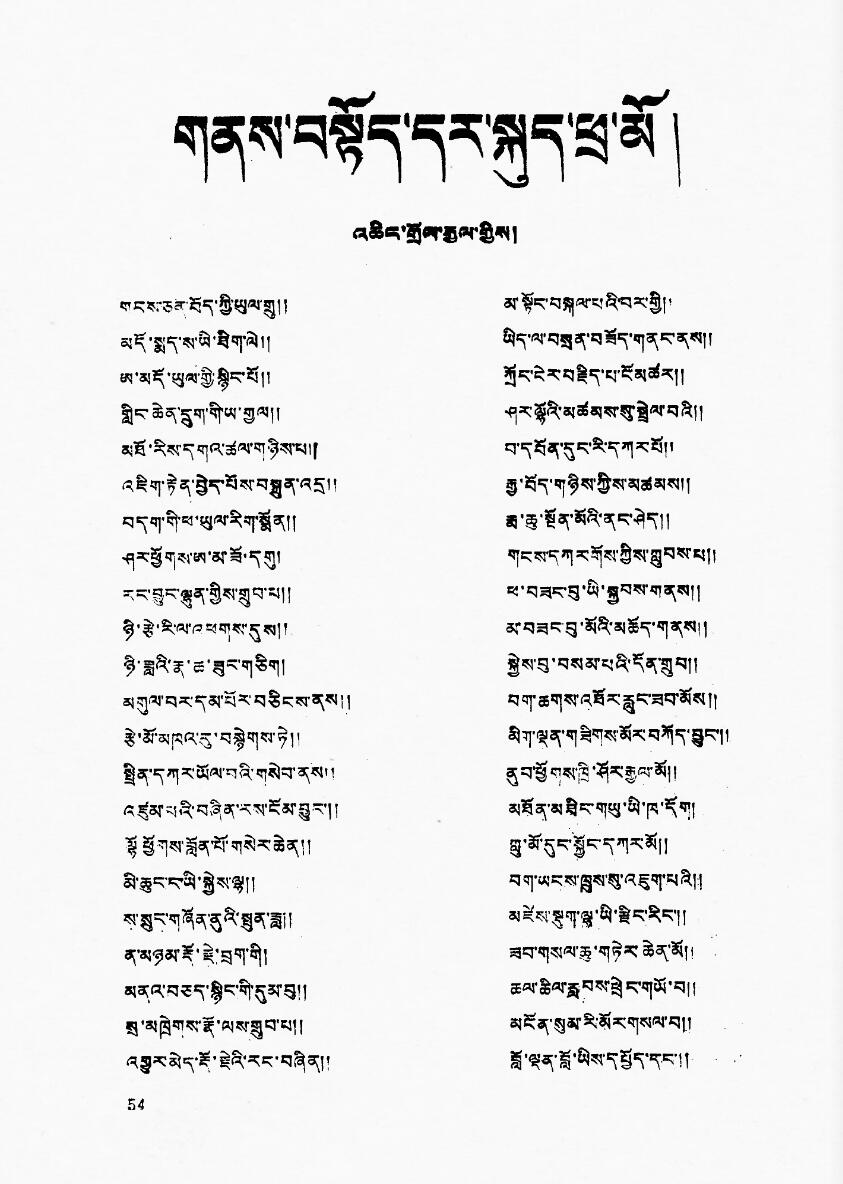 གནས་བསྟོད་དར་སྐུད་ཕྲ་མོ།
འཆིང་གྲོས་རྒྱལ་གྱིས།
གངས་ཅན་བོད་ཀྱི་ཡུལ་གྲུ།།
མདོ་སྨད་ས་ཡི་ཐིག་ལེ།།
ཨ་མདོ་ཡུལ་གྱི་སྙིང་པོ།།
གླིང་ཆེན་དྲུག་གིཡ་རྒྱལ།།
མཐོ་རིས་དགའ་ཚལ་གཉིས་པ།།
འཇིག་རྟེན་བྱེད་པོས་བསྒྲུན་འདྲ།།
བདག་གི་ཕ་ཡུལ་རིག་སྨོན།།
ཤར་ཕྱོགས་ཨ་མ་ཟོ་དགུ།
རང་བྱུང་ལྷུན་གྱིས་གྲུབ་པ།།
ཉི་རྩེ་རི་ལ་འཕགས་དུས།།
ཉི་ཟླའི་རྣ་ཆ་ཟུང་གཅིག།
མགུལ་བར་དམ་པོར་བཅིངས་ནས།།
རྩེ་མོ་མཁའ་རུ་བསྙེགས་ཏེ།།
སྤྲིན་དཀར་ཡོལ་བའི་གསེབ་ནས།།
འཛུམ་པའི་བཞིན་རས་ངོམ་བྱུང་།།
ལྷོ་ཕྱོགས་བློན་པོ་གསེར་ཆེན།།
མི་ཆུང་ང་ཡི་སྐྱེས་ལྷ།།
ས་སྲུང་གཞོན་ནུའི་སྤུན་ཟླ།།
ན་མཉམ་རྡོ་རྗེ་བྲག་གི།
མནའ་བཅད་སྙིང་གི་དུམ་བུ།།
སྲ་མཁྲེགས་རྡོ་ལས་གྲུབ་པ།།
འགྱུར་མེད་རྡོ་རྗེའི་རང་བཞིན།།
མ་སྟོང་བསྐལ་པའི་བར་གྱི།
ཡིད་ལ་བསྲན་བཟོད་གནང་ནས།།
ཀྲོང་ངེར་བརྗིད་པ་ངོ་མཚར།།
ཤར་ལྷོའི་མཚམས་སུ་སྦྲེལ་བའི།།
བ་ད་བོན་དུང་རི་དཀར་པོ།།
རྒྱ་བོད་གཉིས་ཀྱིས་མཚམས།།
རྨ་ཆུ་སྔོན་མོའི་ནང་ཤེད།།
གངས་དཀར་གོས་ཀྱིས་ཀླུབས་པ།།
ཕ་བཟང་བུ་ཡི་སྐྱབས་གནས།།
མ་བཟང་བུ་མོའི་མཆོད་གནས།།
སྐྱེས་བུ་བསམ་པའི་དོན་གྲུབ།།
བག་ཆགས་འཐོར་རླུང་ཟབ་མོས།།
མིག་ལྡན་གཟིགས་མོར་བཀོད་བྱུང་།།
ནུབ་ཕྱོགས་ཁྲི་ཤོར་རྒྱལ་མོ།།
མཐོན་མཐིང་གཡུ་ཡི་ཁ་དོག།
ཀླུ་མོ་དུང་སྐྱོང་དཀར་མོ།།
བག་ཡངས་ཁྲུས་སུ་འཇུག་པའི།།
མཛེས་སྡུག་ལྷ་ཡི་རྫིང་རིང་།།
ཟབ་གསལ་ཆུ་གཏེར་ཆེན་མོ།།
ཆལ་ཆིལ་རྦ་རླབས་ཕྲེང་གཡོ་བ།།
མངོན་སུམ་རི་མོར་གསལ་བ།།
བློ་ལྡན་བློ་ཡིས་དཔྱོད་དང་།།
54